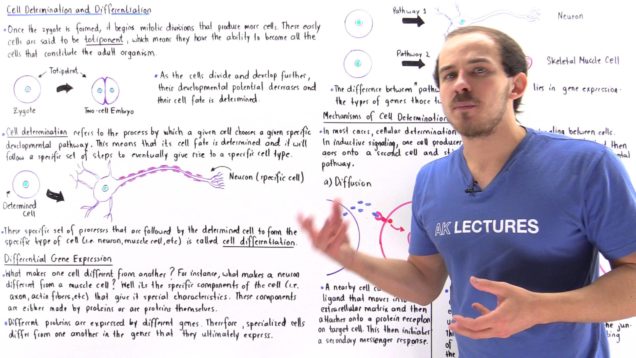 Cell Determination and Differentiation
• Once the zygote is formed, it begins mitotic divisions that produce more cells. These early
cells are said to be totipotent, which means they have the ability to become all the
cells that constitute the adult organism.
Totipotent
Zygote
Two-cell Embryo
• As the cells divide and develop further,
their developmental potential decreases and
their cell fate is determined.
• Cell determination refers to the process by which a given cell chooses a given specific
developmental pathway. This means that its cell fate is determined and it will
follow a specific set of steps to eventually give rise to a specific cell type.
Determined
Cell
Neuron (specific cell)
• These specific set of processes that are followed by the determined cell to form the
specific type of cell (i.e. neuron, muscle cell, etc) is called cell differentiation.
Differential Gene Expression
• What makes one cell different from another? For instance, what makes a neuron
different from a muscle cell? Well its the specific components of the cell (i.e.
axon, actin fibers, etc) that give it special characteristics. These components
are either made by proteins or are proteins themselves.
• Different proteins are expressed by different genes. Therefore, specialized cells
differ from one another in the genes that they ultimately express.
Pathway 1
Neuron
Pathway 2
Skeletal Muscle Cell
• The difference between "path
lies in gene expression
the types of genes those
Mechanisms of Cell Determination
• In most cases, cellular determination
between cells.
In inductive signaling, one cell produces
then
goes onto a second cell and
pathway.
a) Diffusion
• A nearby cell
ligand that moves
extracellular matrix and then
attaches onto a protein receptor
on target cell. This then initiates
a secondary messenger response.
AK LECTURES